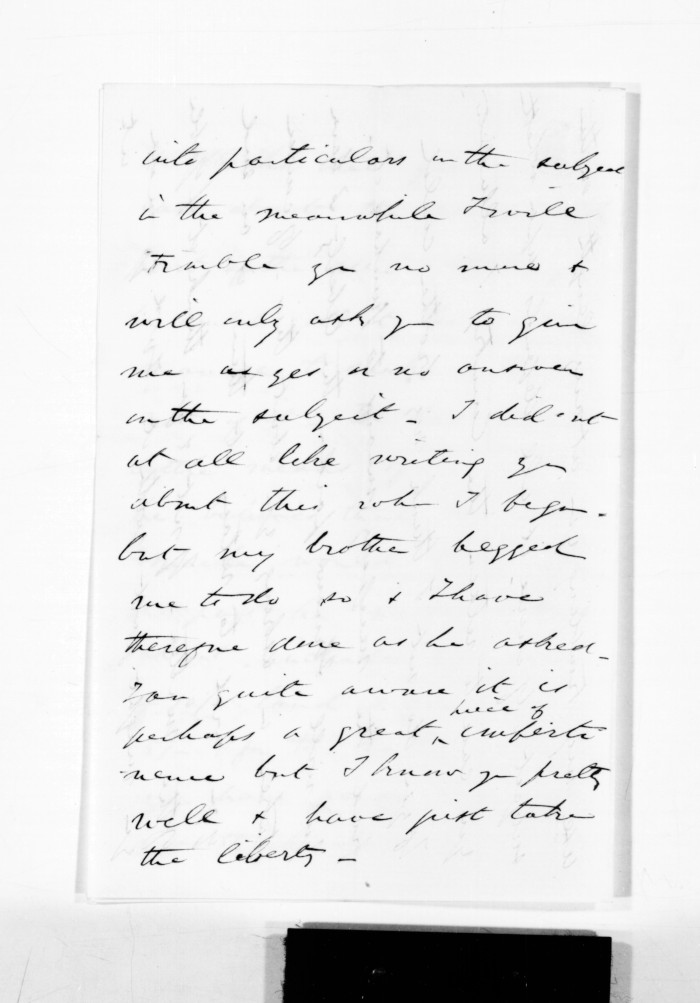 into particulars on the subject
in the meanwhile I will
trouble you no more &
will only ask you to give
me a yes or no answer
on the subject - I did not
at all like writing you
about this when I began -
but my brother begged
me to do so & I have
therefore done as he asked -
I am quite aware it is
perhaps a great piece of imperti
nence but I know you pretty
well & have just take
the liberty -